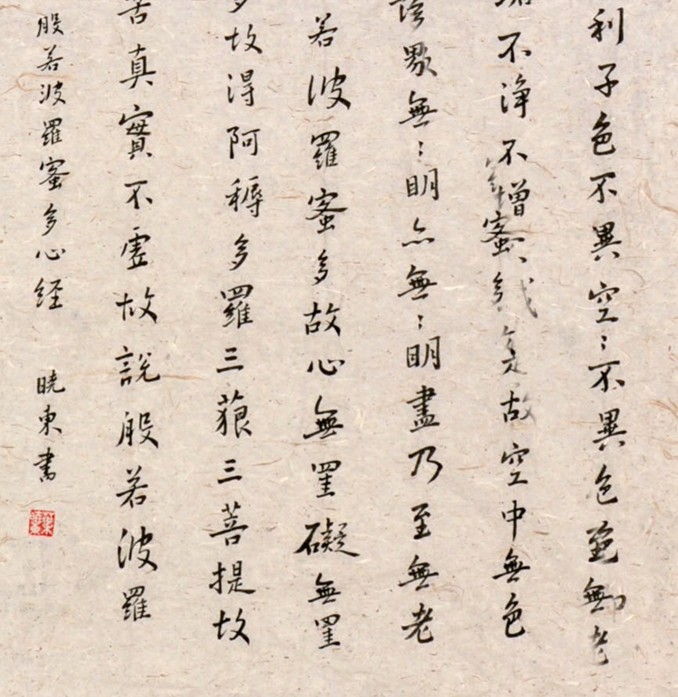 利子色不異空〻不異色
不淨不增蜜多是故空中無色
界無〻明亦無〻明盡乃至無老
若波羅蜜多故心無罣礙無罣
多故得阿耨多羅三藐三菩提故
苦真實不虛故說般若波羅
般若波羅蜜多心経 曉東書